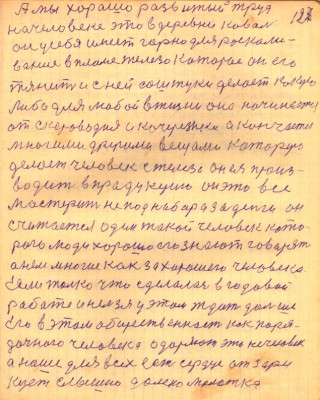 122
А мы хорошо развитый труд
на человеке это в деревни ковал
он у себя имеет горно для роскали-
вание в пламе железо которое он его
тянить и с ней соштуки делает какую
либо для любой в жизни она начинается
от сковородня и кочережка а кончается
многими другими вещами которую
делает человек с железа он ея произ-
водит в продукцию он это все
мастерить не под набараз а деньги он
считается один такой человек кото-
рого люди хорошо его знают говорят
о нем многие как за хорошего человека
Если только что сделалась в годовой
работе и нельзя у этом ждать дальше
Его в этом общественнасть как поря-
дочного человека одержит это не человек
а наше для всех ест сердце от зари
кует слышно далеко молотка